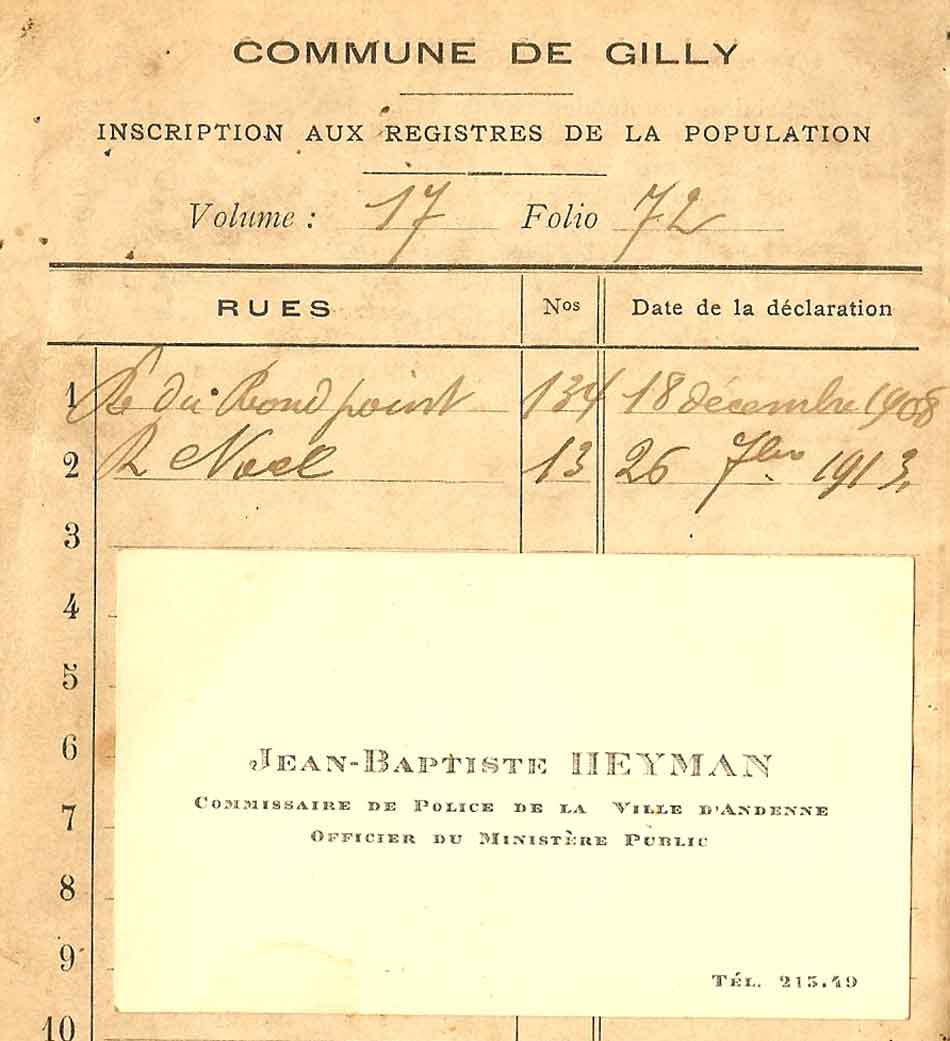 COMMUNE DE GILLY
INSCRIPTION AUX REGISTRES DE LA POPULATION
Volume : 17 Folio 72
RUES Nos Date de la déclaration
1 R. du Rond point 134 18 décembre 1908
2 R Noel 13 26 7bre 1913.
3
4
5
6
7
8
9
10
JEAN-BAPTISTE HEYMAN
COMMISSAIRE DE POLICE DE LA VILLE D'ANDENNE
OFFICIER DU MINISTÈRE PUBLIC
TÉL. 215.49